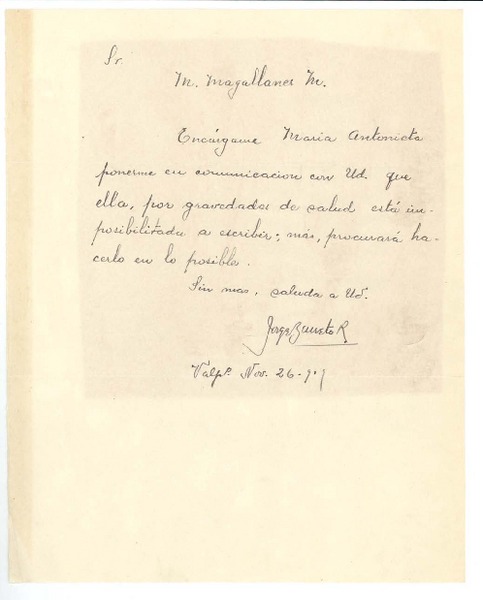 Sr.
M. Magallanes M.
Encárgame Maria Antonieta
ponerme en comunicacion con Ud. que
ella, por gravedades de salud está im-
posibilitada a escribir; más, procurará ha-
cerlo en lo posible.
Sin mas, saluda a Ud.
Jorge R
Valpº. Nov. 26-909